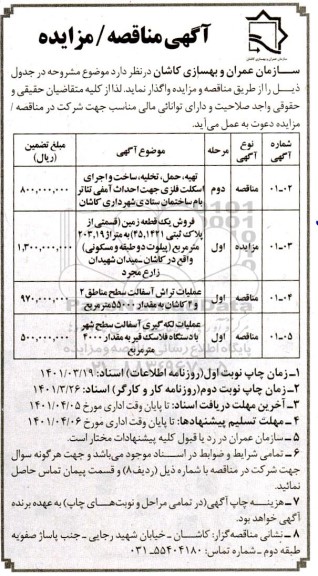 آگهی مناقصه / مزایده
سازمان عمران و بهسازی شهری کاشان
سازمان عمران و بهسازی کاشان درنظر دارد موضوع مشروحه در جدول
ذیل را از طریق مناقصه و مزایده واگذار نماید. لذا از کلیه متقاضیان حقیقی و
حقوقی واجد صلاحیت و دارای توانائی مالی مناسب جهت شرکت در مناقصه /
مزایده دعوت به عمل می‌آید.
شماره آگهی | نوع آگهی | مرحله | موضوع آگهی | مبلغ تضمین (ریال)
۰۱-۰۲ | مناقصه | دوم | تهیه، حمل، تخلیه، ساخت و اجرای اسکلت فلزی جهت احداث آمفی تئاتر بام ساختمان ستادی شهرداری کاشان | ۸۰۰,۰۰۰,۰۰۰
۰۱-۰۳ | مزایده | اول | فروش یک قطعه زمین (قسمتی از پلاک ثبتی ۴۵,۱۴۲۱) به متراژ ۲۰۳,۱۹ مترمربع (پیلوت دو طبقه و مسکونی) واقع در کاشان ـ میدان شهیدان زارع مجرد | ۱,۳۰۰,۰۰۰,۰۰۰
۰۱-۰۴ | مناقصه | اول | عملیات تراش آسفالت سطح مناطق ۲ و ۴ کاشان به مقدار ۵۵۰۰۰ مترمربع | ۹۷۰,۰۰۰,۰۰۰
۰۱-۰۵ | مناقصه | اول | عملیات لکه گیری آسفالت سطح شهر با دستگاه فلاسک قیر به مقدار ۴۰۰۰ مترمربع | ۵۰۰,۰۰۰,۰۰۰
۱ـ زمان چاپ نوبت اول (روزنامه اطلاعات) اسناد: ۱۴۰۱/۰۳/۱۹
۲ـ زمان چاپ نوبت دوم (روزنامه کار و کارگر) اسناد: ۱۴۰۱/۳/۲۶
۳ـ آخرین مهلت دریافت اسناد: تا پایان وقت اداری مورخ ۱۴۰۱/۰۴/۰۵
۴ـ مهلت تسلیم پیشنهادها: تا پایان وقت اداری مورخ ۱۴۰۱/۰۴/۰۶
۵ ـ سازمان عمران در رد یا قبول کلیه پیشنهادات مختار است.
۶ ـ تمامی شرایط و ضوابط در اسناد موجود می‌باشد و جهت هرگونه سوال
جهت شرکت در مناقصه با شماره ذیل (ردیف۸) و قسمت پیمان تماس حاصل
نمائید.
۷ ـ هزینه چاپ آگهی (در تمامی مراحل و نوبت‌های چاپ) به عهده برنده
آگهی خواهد بود.
۸ ـ نشانی مناقصه گزار: کاشان ـ خیابان شهید رجایی ـ جنب پاساژ صفویه
طبقه دوم ـ شماره تماس: ۵۵۴۰۴۱۸۰ـ ۰۳۱